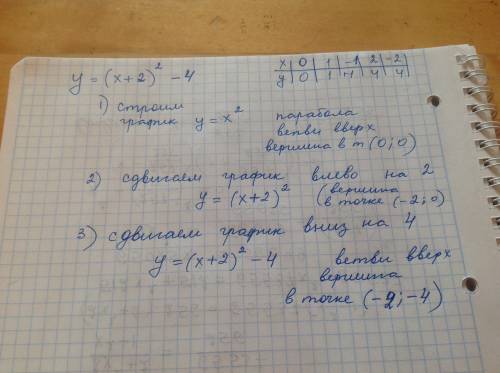 y = (x+2)² − 4
x 0 1 -1 2 -2
y 0 1 1 4 4
1) строим
график y = x²
парабола
ветви вверх
вершина в т (0; 0)
2) сдвигаем график влево на 2
y = (x+2)² (вершина
в точке (-2; 0)
3) сдвигаем график вниз на 4
y = (x+2)² − 4 ветви вверх
вершина
в точке (-2; -4)